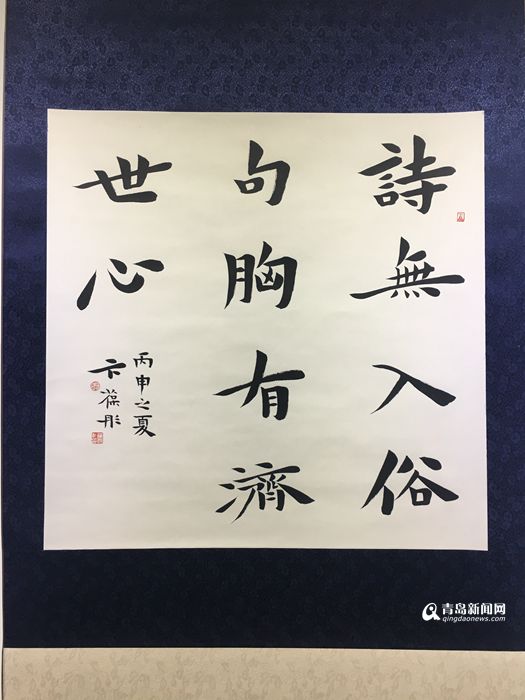 詩無入俗
句胸有濟
世心
丙申之夏
卞葆彤
青岛新闻网
qingdaonews.com